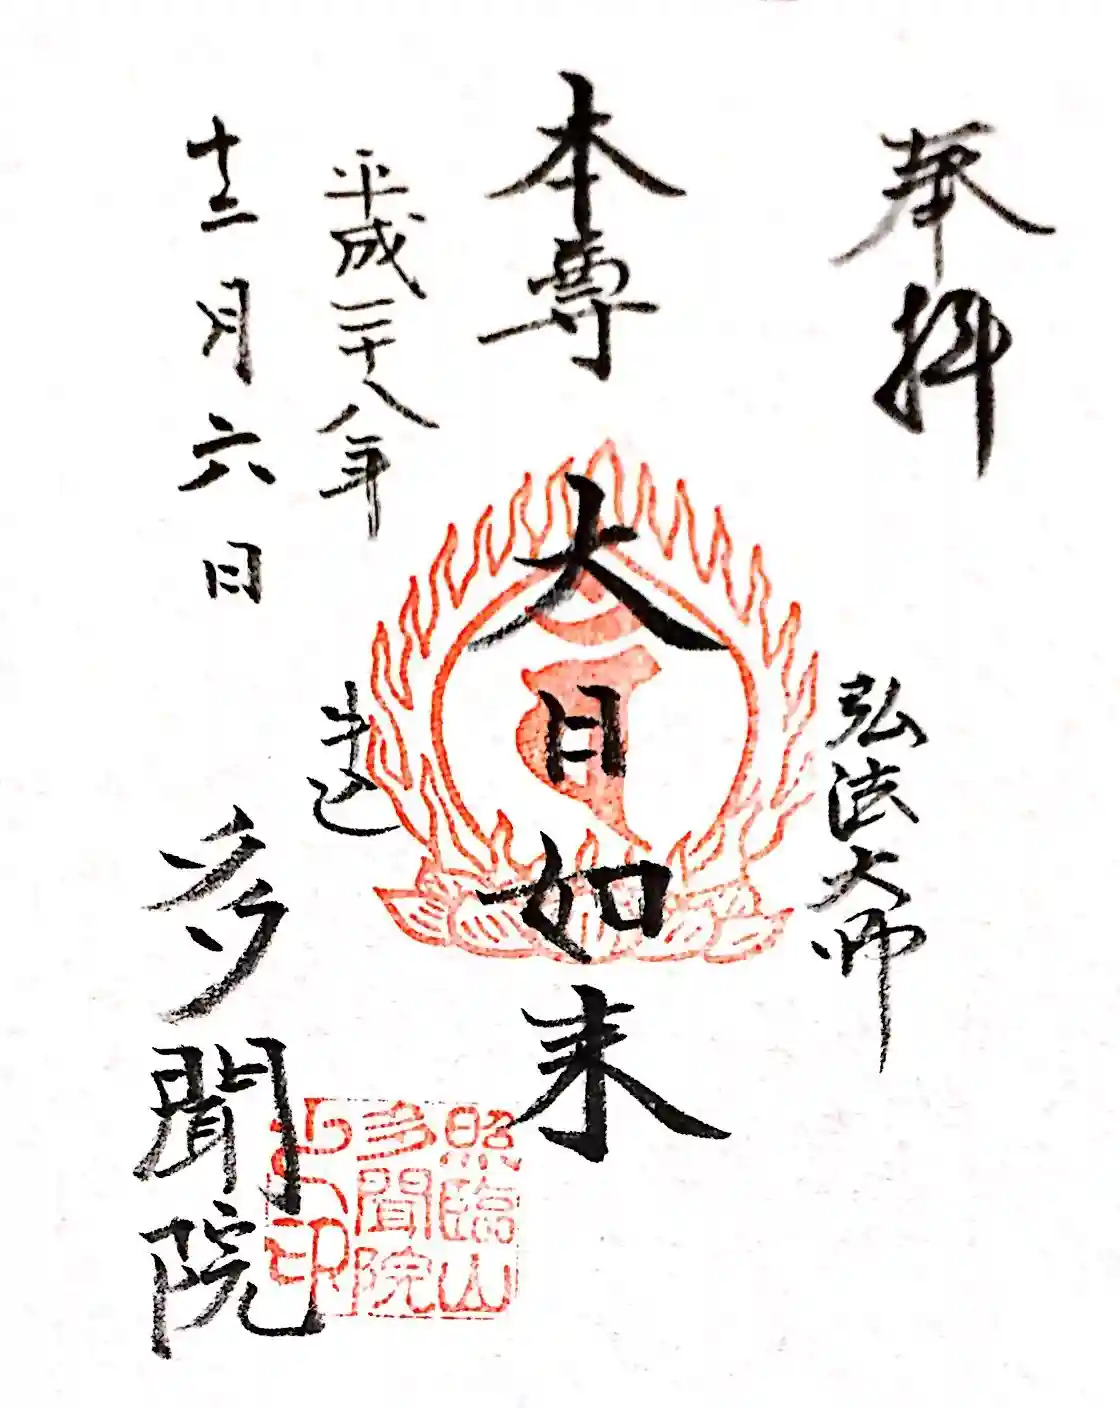 奉拝
弘法大師
本尊
大日如来
平成二十八年
十二月六日
多聞院
照臨山
多聞院
之印